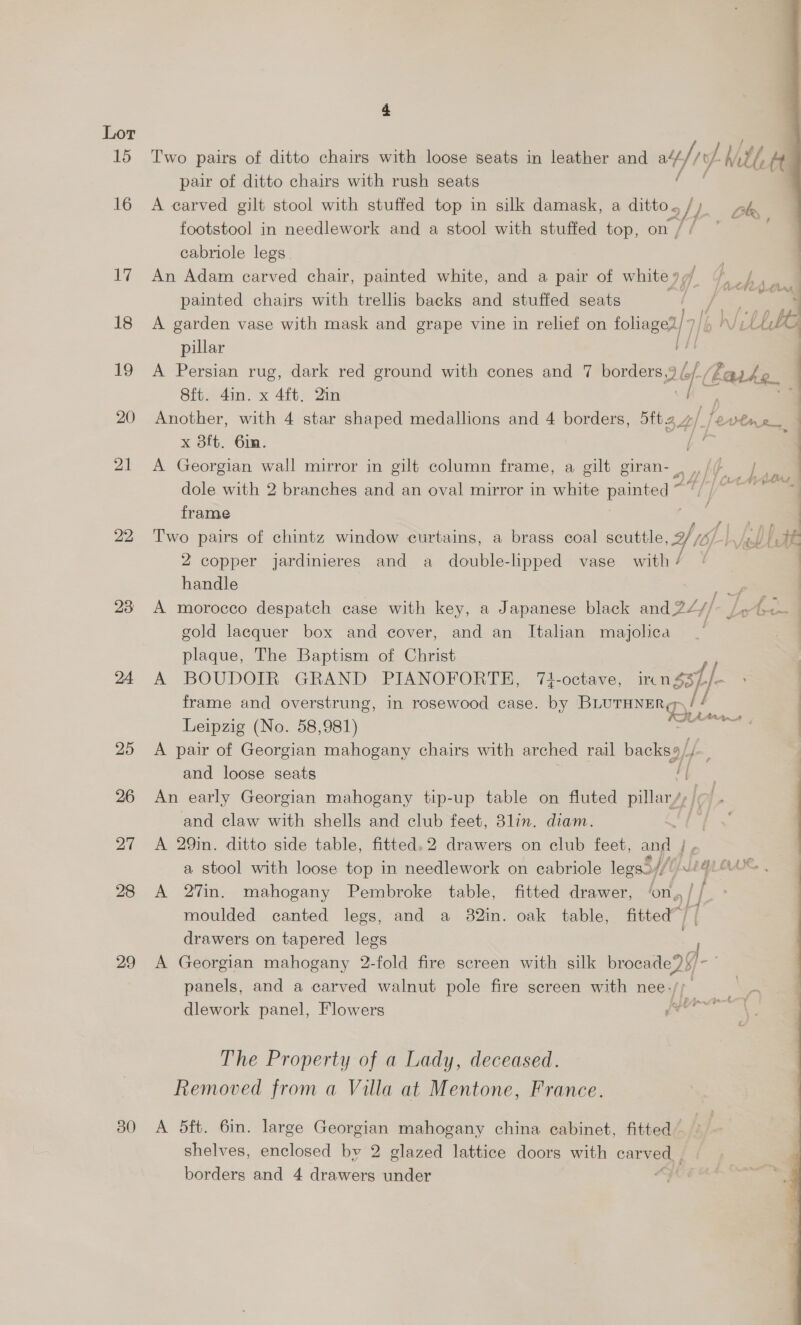 4
Lot
15 Two pairs of ditto chairs with loose seats in leather and a
pair of ditto chairs with rush seats
16 A carved gilt stool with stuffed top in silk damask, a ditto
footstool in needlework and a stool with stuffed top, on
cabriole legs
17 An Adam carved chair, painted white, and a pair of white
painted chairs with trellis backs and stuffed seats
18 A garden vase with mask and grape vine in relief on foliage
pillar
19 A Persian rug, dark red ground with cones and 7 borders,
8ft. 4in. x 4ft. 2in
20 Another, with 4 star shaped medallions and 4 borders, 5ft
x 3ft. 6in.
21 A Georgian wall mirror in gilt column frame, a gilt giran-
dole with 2 branches and an oval mirror in white painted
frame
22 Two pairs of chintz window curtains, a brass coal scuttle,
2 copper jardinieres and a double-lipped vase with
handle
23 A morocco despatch case with key, a Japanese black and
gold lacquer box and cover, and an Italian majolica
plaque, The Baptism of Christ
24 A BOUDOIR GRAND PIANOFORTE, 7¼-octave, iron
frame and overstrung, in rosewood case. by BLUTHNER
Leipzig (No. 58,981)
25 A pair of Georgian mahogany chairs with arched rail backs
and loose seats
26 An early Georgian mahogany tip-up table on fluted pillar
and claw with shells and club feet, 31in. diam.
27 A 29in. ditto side table, fitted 2 drawers on club feet, and
a stool with loose top in needlework on cabriole legs
28 A 27in. mahogany Pembroke table, fitted drawer, on
moulded canted legs, and a 32in. oak table, fitted
drawers on tapered legs
29 A Georgian mahogany 2-fold fire screen with silk brocade
panels, and a carved walnut pole fire screen with nee-
dlework panel, Flowers
The Property of a Lady, deceased.
Removed from a Villa at Mentone, France.
30 A 5ft. 6in. large Georgian mahogany china cabinet, fitted
shelves, enclosed by 2 glazed lattice doors with carved
borders and 4 drawers under